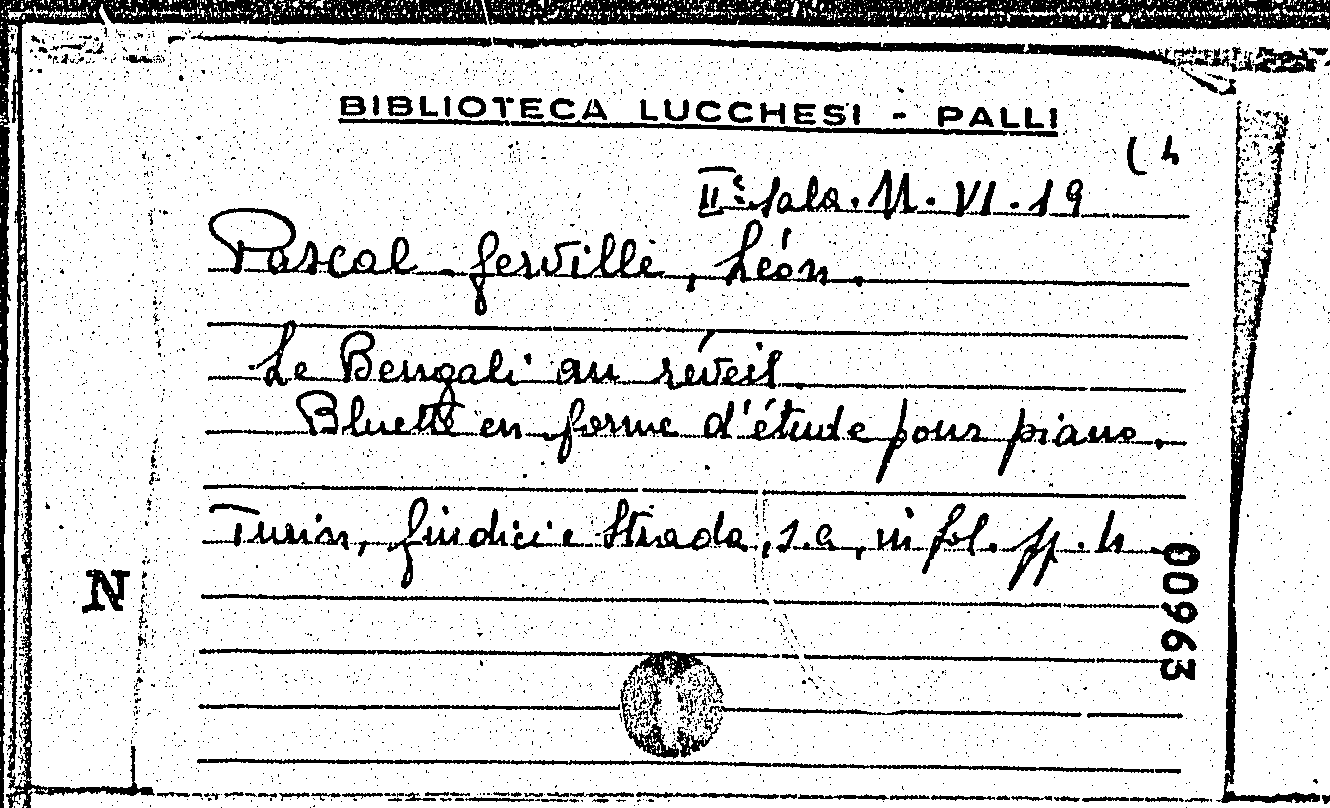 BIBLIOTECA LUCCHESI - PALLI
(4
IIª sala. M. VI. 19
Pascal-Gerville, Léon.
Le Bengali au réveil.
Bluette en forme d'étude pour piano.
Turin, Giudici e Strada, s.a, in fol. pp. 4.
N
00963